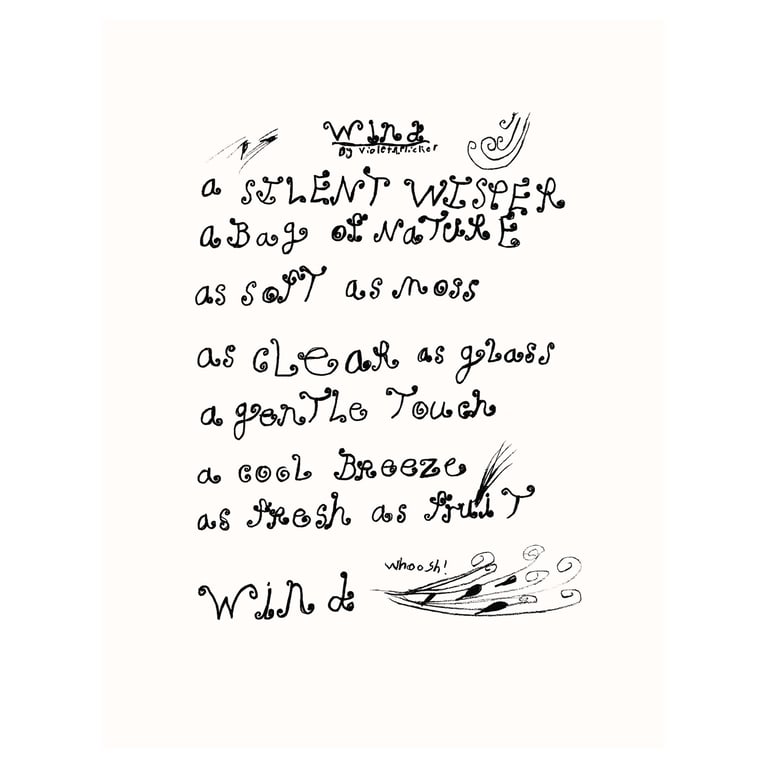 Wind
By Violet A. Micker
a SILENT WISPER
a Bag of NaTURE
as SofT as moss
as cLeaR as glass
a genTLe Touch
a cool BReeze
as fresh as fruiT
whoosh!
Wind